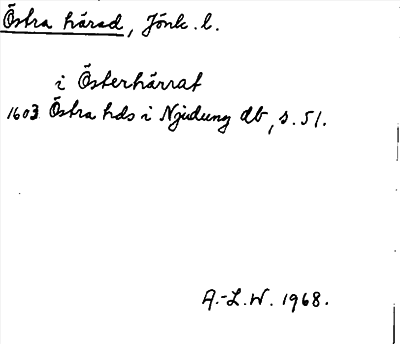 Östra härad, Jönk. l.
i Österhärrat
1603 Östra hds i Njudung db, s. 51.
A.-L.W. 1968.